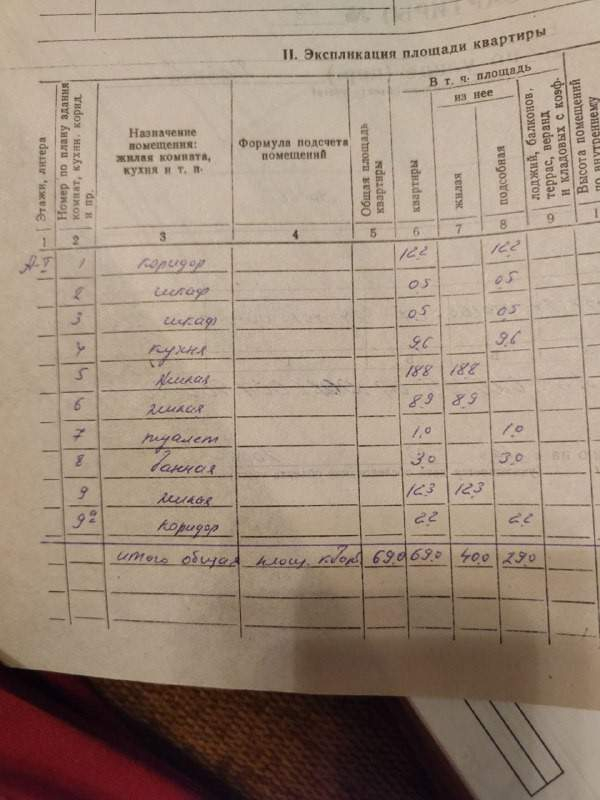 II. Экспликация площади квартиры
Этажи, литера
Номер по плану здания комнат, кухни, корид. и пр.
Назначение помещения: жилая комната, кухня и т. п.
Формула подсчета помещений
Общая площадь квартиры
В т. ч. площадь
квартиры
из нее
жилая
подсобная
лоджий, балконов, террас, веранд и кладовых с коэф-
Высота помещений по внутреннему
1 2 3 4 5 6 7 8 9 1
А-I 1 коридор 12,2 12,2
2 шкаф 0,5 0,5
3 шкаф 0,5 0,5
4 кухня 9,6 9,6
5 жилая 18,8 18,8
6 жилая 8,9 8,9
7 туалет 1,0 1,0
8 ванная 3,0 3,0
9 жилая 12,3 12,3
9а коридор 2,2 2,2
итого общая площ. кварт. 69,0 69,0 40,0 29,0